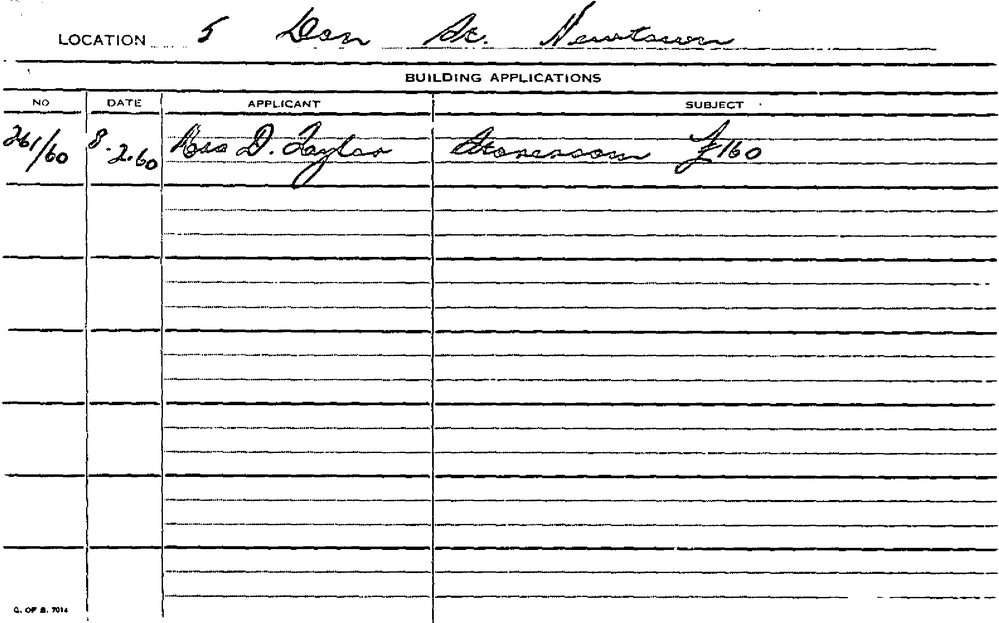 LOCATION 5 Don St. Newtown
BUILDING APPLICATIONS
NO DATE APPLICANT SUBJECT
261/60 8.2.60 Mrs D. Taylor Storeroom £160
C. OF B. 7014